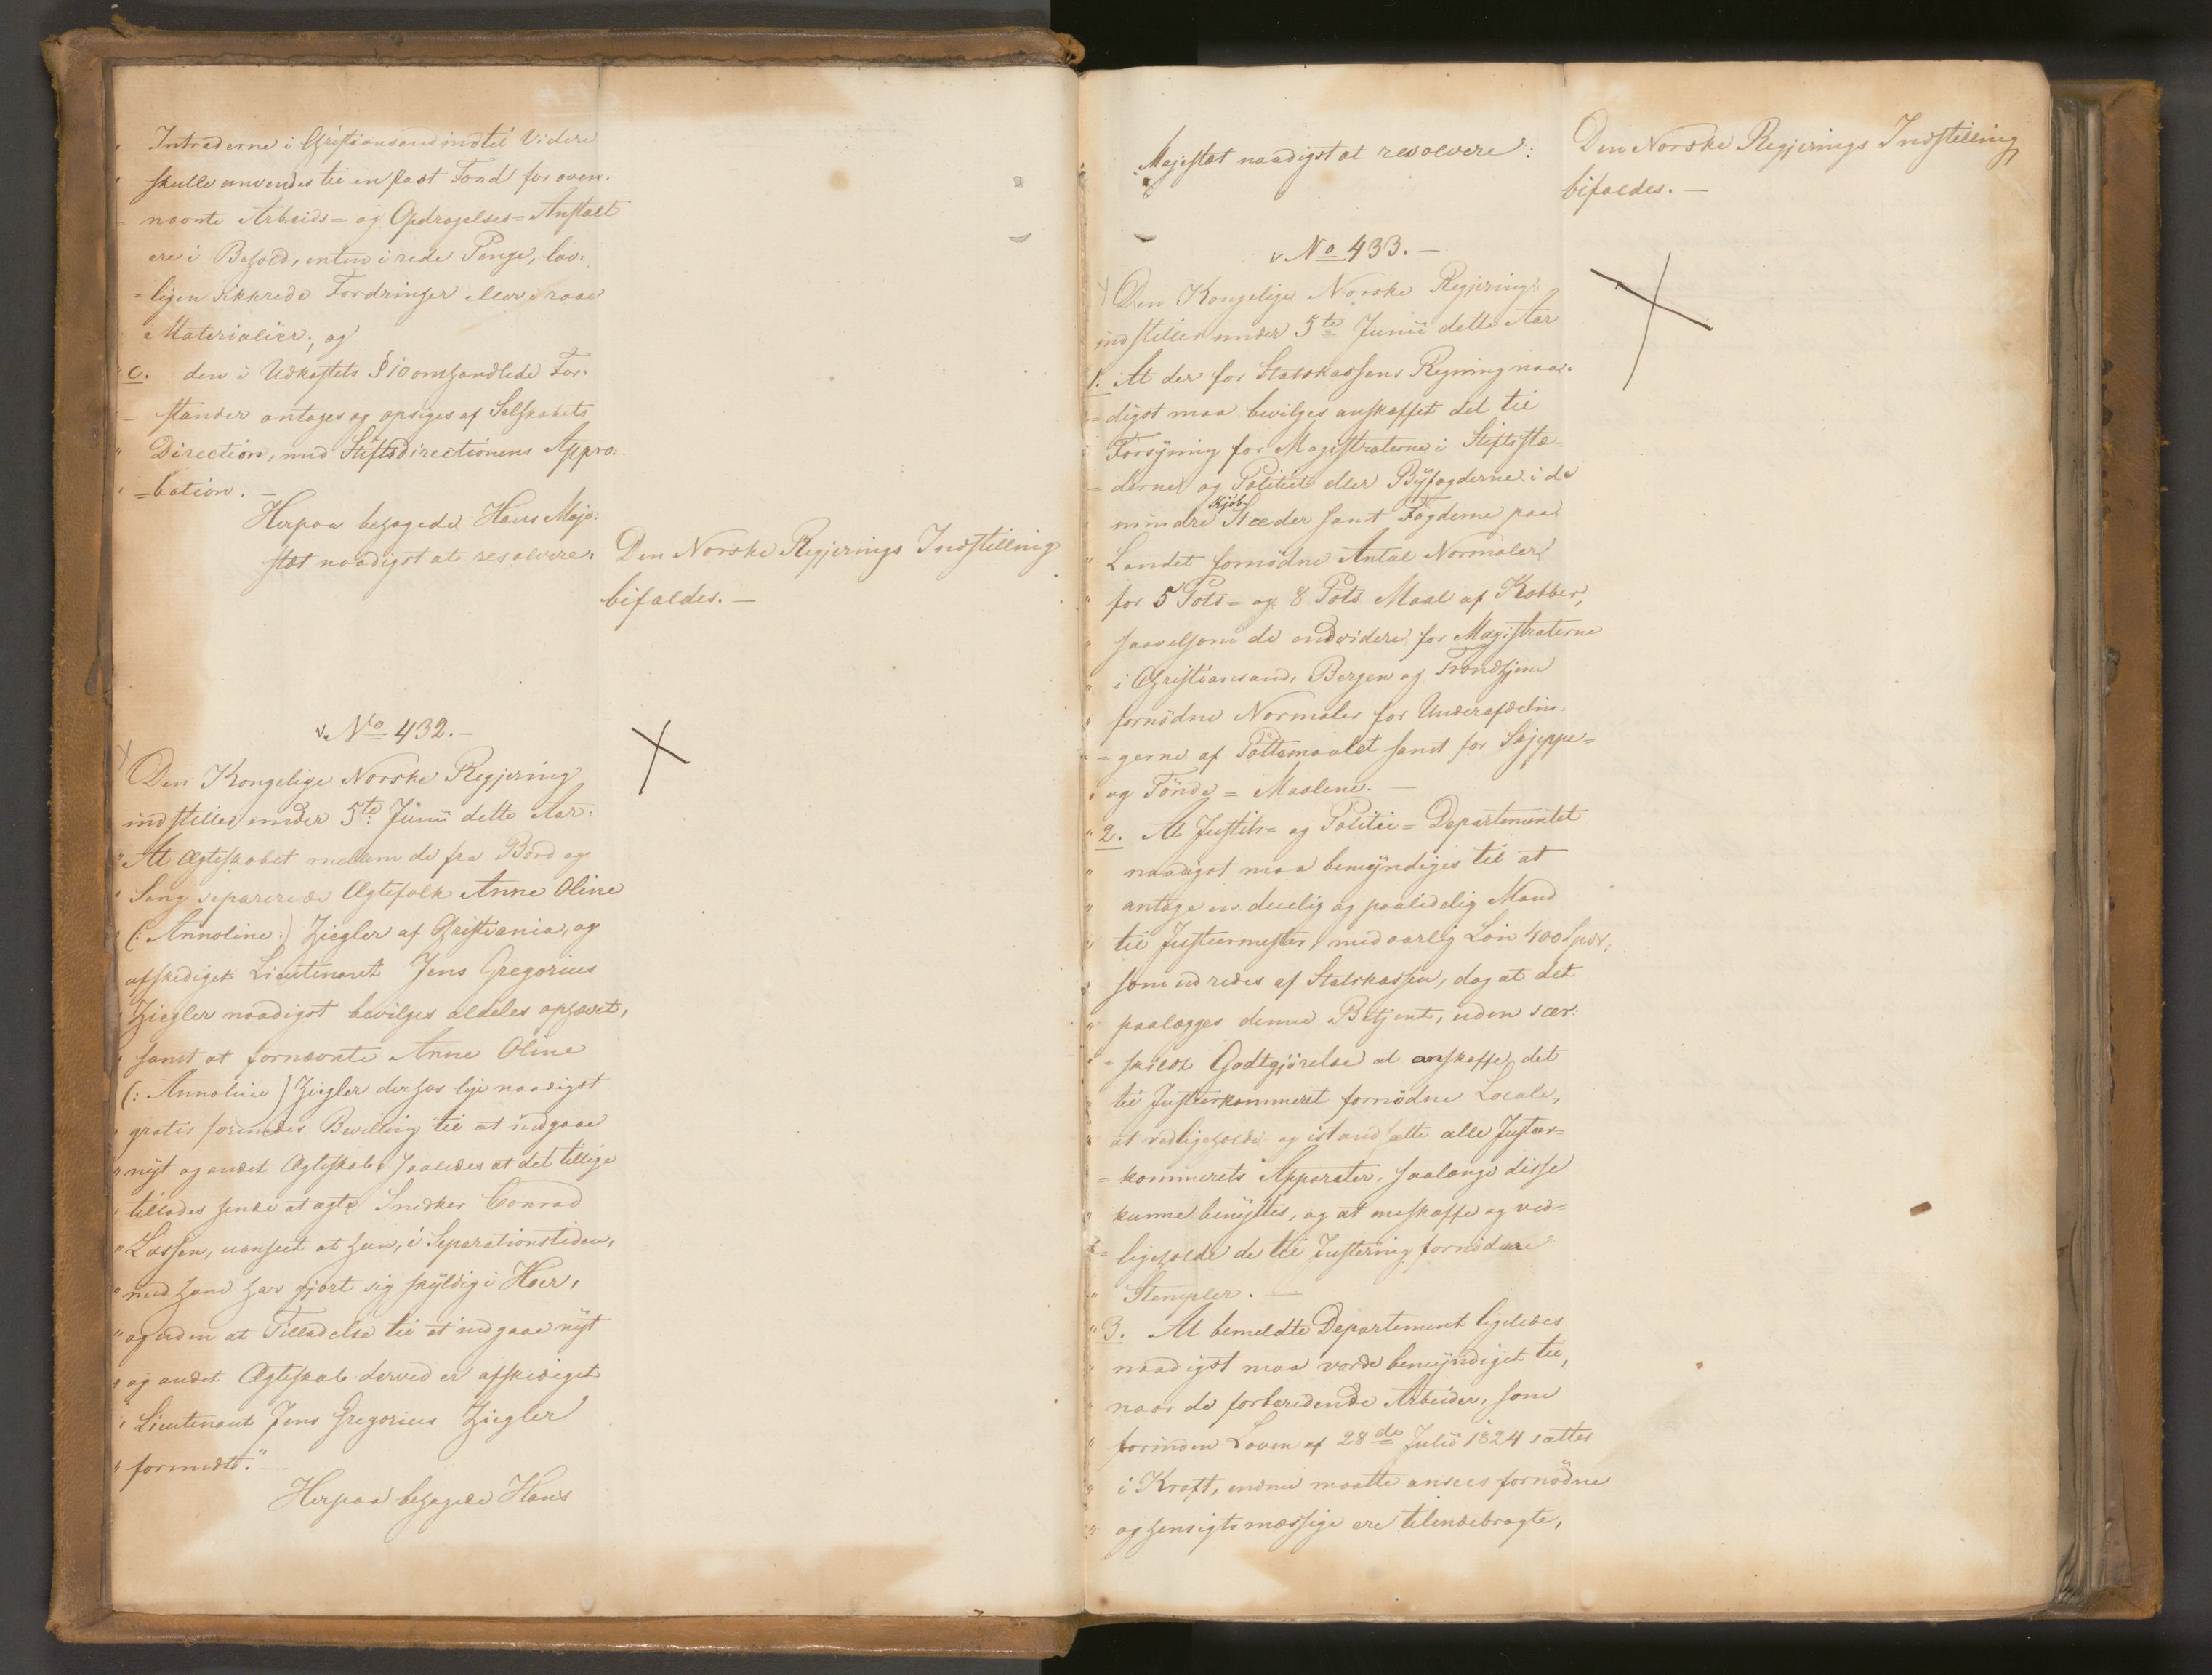 " Intraderne i Christiansand indtil Videre
" skulle anvendes til en fast Fond for oven-
= nævnte Arbeids- og Opdragelses-Anstalt
ere i Behold, enten i rede Penge, lov-
= ligen sikkrede Fordringer eller i raae
Materialier; og
" c. den i Udkastets § 10 omhandlede For-
= stander antages og opsiges af Selskabets
" Direction, med Stiftsdirectionens Appro-
" =bation. —
Herpaa behagede Hans Maje-
stæt naadigst at resolvere:
Den Norske Regjerings Indstilling
bifaldes. —
No 432. —
Den Kongelige Norske Regjering
indstiller under 5te Junii dette Aar:
" At Ægteskabet mellem de fra Bord og
" Seng separerede Ægtefolk Anne Oline
" (: Annoline :) Ziegler af Christiania, og
afskediget Lieutenant Jens Gregorius
" Ziegler naadigst bevilges aldeles ophævet,
" samt at fornævnte Anne Oline
" (: Annoline ) Ziegler derhos lige naadigst
" gratis forundes Bevilling til at indgaae
" nyt og andet Ægteskab, saaledes at det tillige
" tillades hende at ægte Snedker Conrad
" Lassen, uanseet at hun, i Separationstiden,
" med ham har gjort sig skyldig i Hoer,
" og uden at Tilladelse til at indgaae nyt
" og andet Ægteskab derved er afskediget
" Lieutenant Jens Gregorius Ziegler
" formeent." —
Herpaa behagede Hans
Majestæt naadigst at resolvere:
Den Norske Regjerings Indstilling
bifaldes. —
No 433. —
Den Kongelige Norske Regjering
indstiller under 5te Junii dette Aar
1. At der for Statskassens Regning naa-
= digst maa bevilges anskaffet det til
" Forsyning for Magistraterne i Stiftsstæ-
= derne og Politiet eller Byfogderne i de
" mindre Kjøb Stæder samt Fogderne paa
" Landet fornødne Antal Normaler
" for 5 Pots- og 8 Pots Maal af Kobber,
" saavelsom de endvidere for Magistraterne
" i Christiansand, Bergen og Trondhjem
" fornødne Normaler for Underafdelin-
" = gerne af Pottemaalet samt for Skjeppe-
" og Tønde- Maalene. —
" 2. At Justits- og Politie- Departementet
" naadigst maa bemyndiges til at
" antage en duelig og paalidelig Mand
" til Justeermester, med aarlig Løn 400 Spdr,
" som udredes af Statskassen, dog at det
" paalægges denne Betjent, uden sær-
" = skildt Godtgjørelse at anskaffe det
til Justeerkammeret fornødne Locale,
" at vedligeholde og istandsætte alle Justeer-
= kammerets Apparater, saalænge disse
" kunne benyttes, og at anskaffe og ved-
" = ligeholde de til Justering fornødne
" Stempler. —
" 3. At bemeldte Departement ligeledes
" naadigst maa vorde bemyndiget til,
" naar de forberedende Arbeider, som
" forinden Loven af 28de Julii 1824 sættes
" i Kraft, endnu maatte ansees fornødne
" og hensigtsmæssige ere tilendebragte,